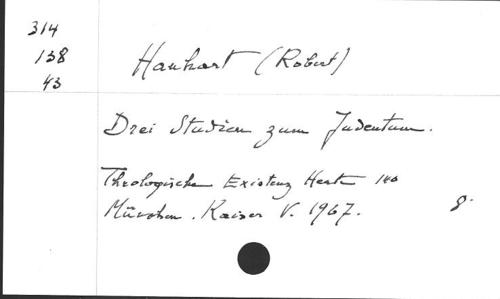 314
138
43
Hanhart (Robert)
Drei Studien zum Judentum.
Theologische Existenz Heute 140
München. Kaiser V. 1967. 8·